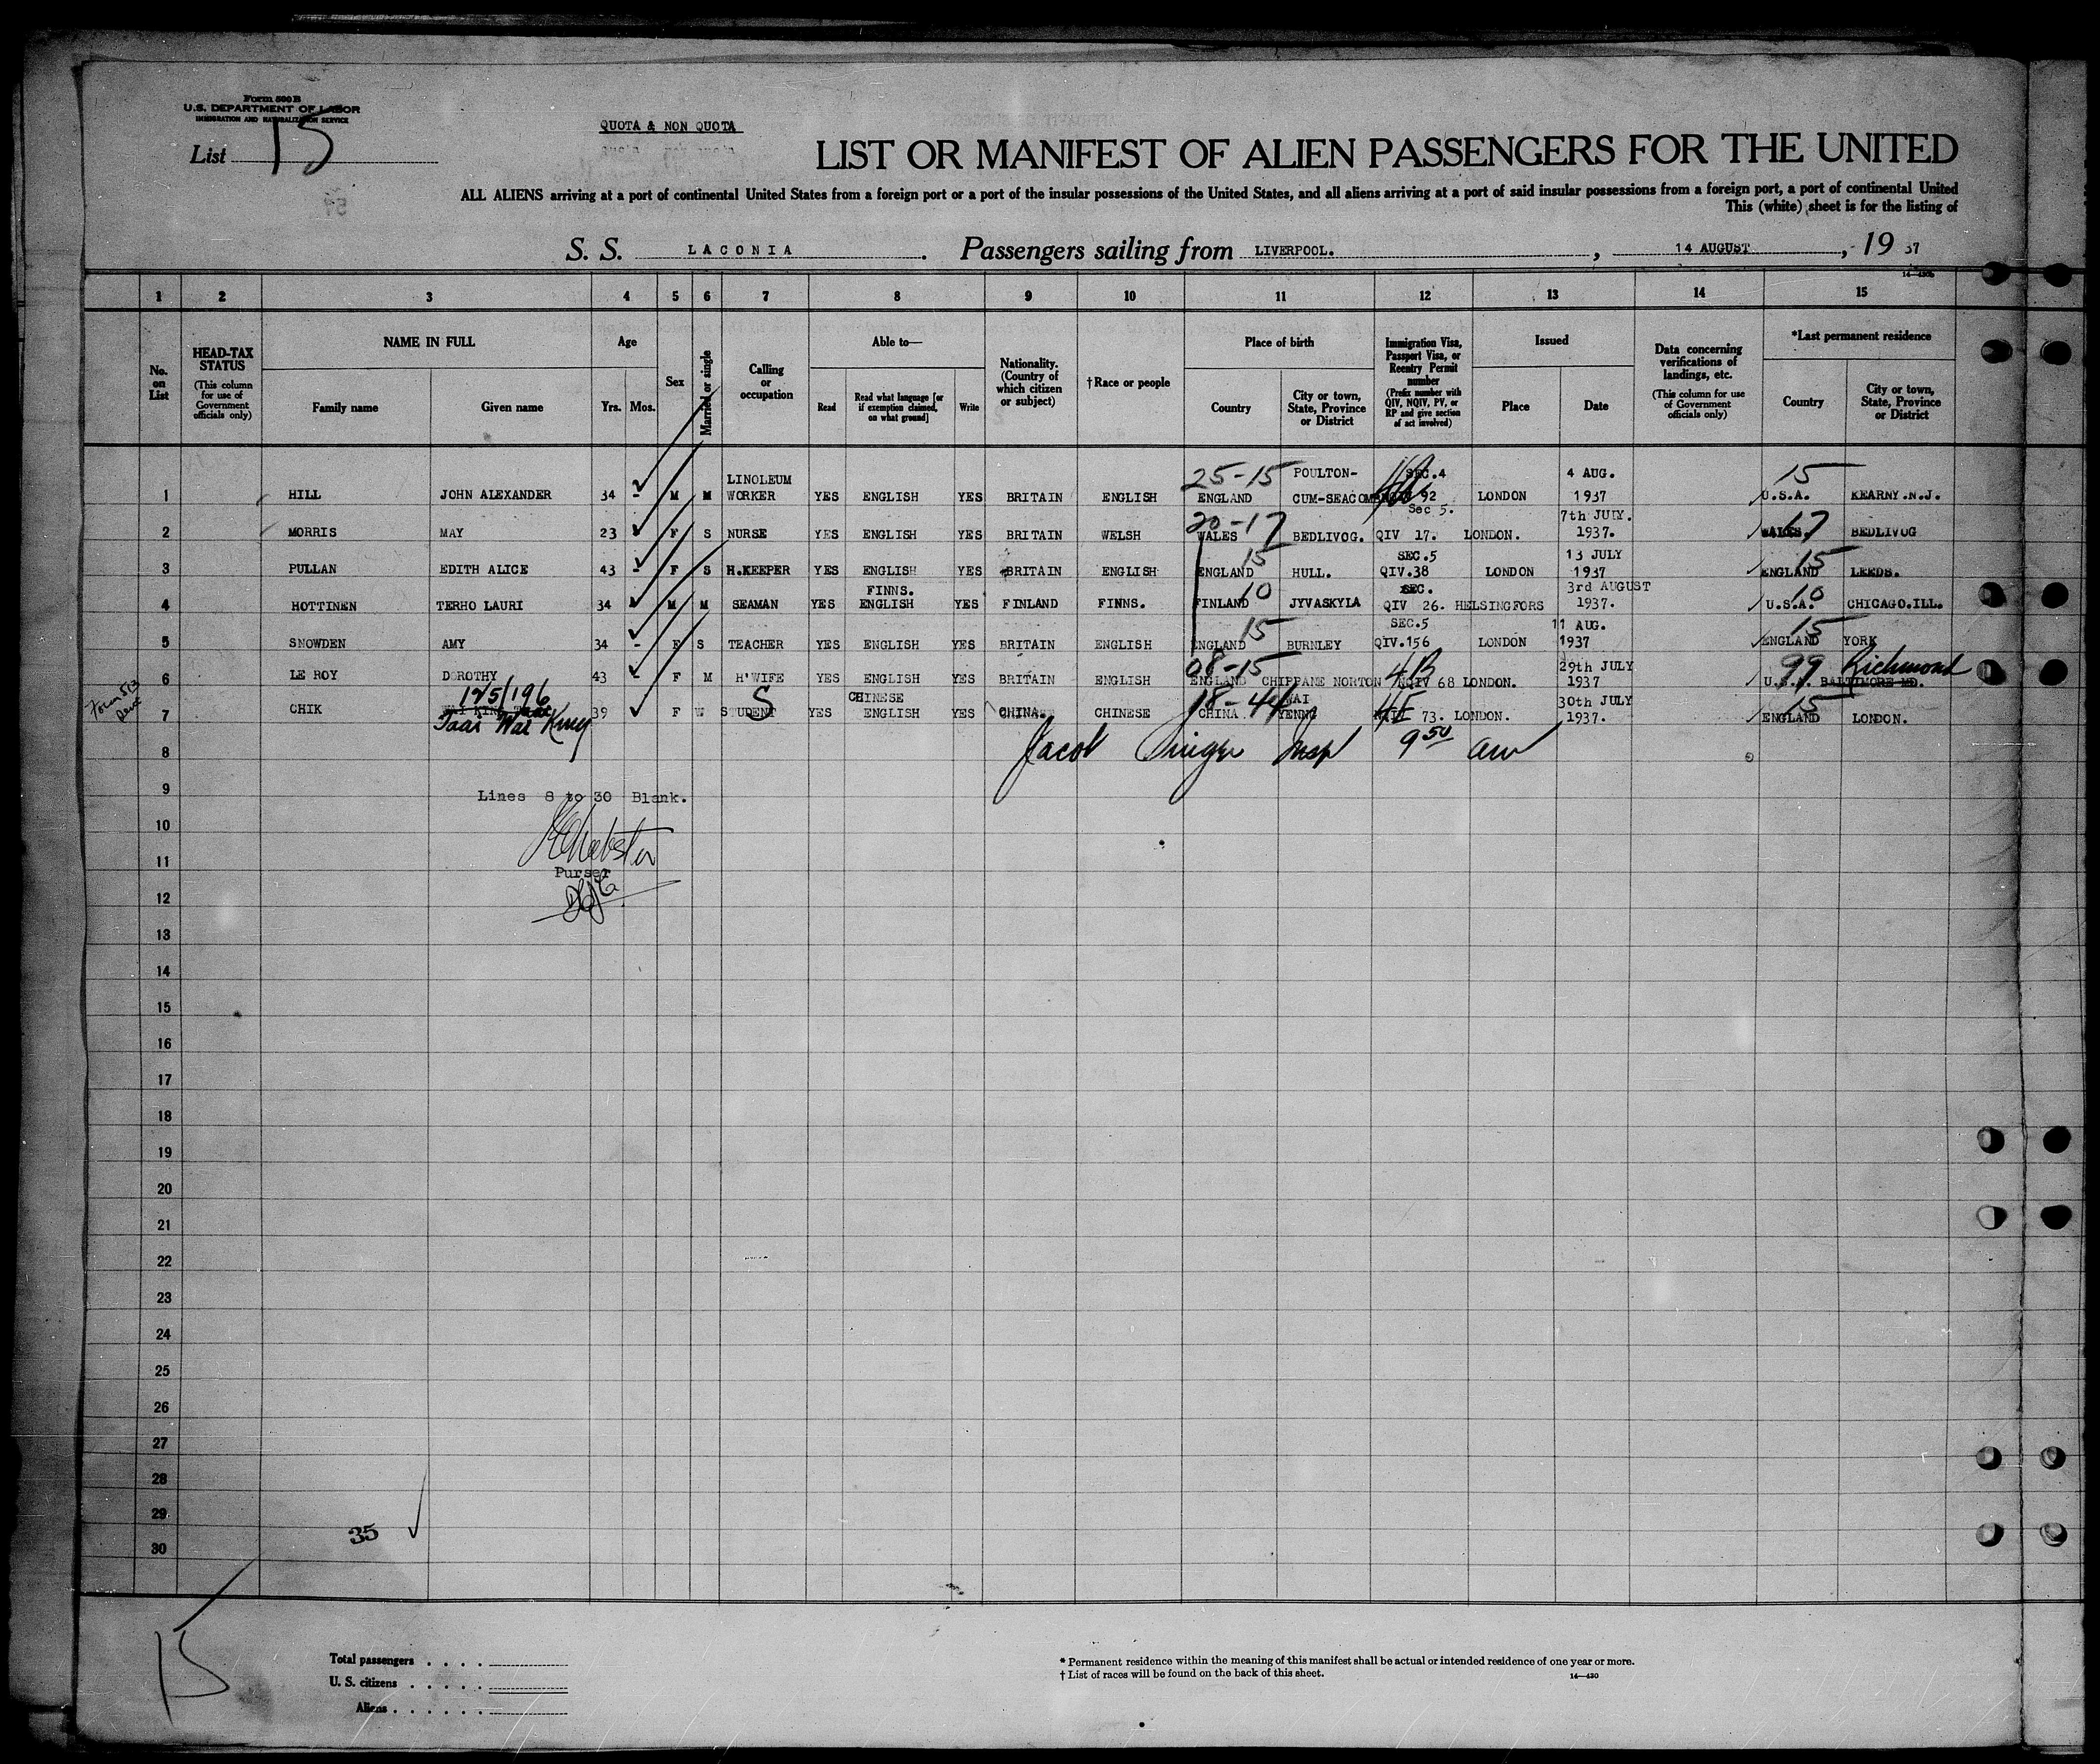 Form 500 B
U.S. DEPARTMENT OF LABOR
IMMIGRATION AND NATURALIZATION SERVICE
List 15
QUOTA & NON QUOTA
LIST OR MANIFEST OF ALIEN PASSENGERS FOR THE UNITED
ALL ALIENS arriving at a port of continental United States from a foreign port or a port of the insular possessions of the United States, and all aliens arriving at a port of said insular possessions from a foreign port, a port of continental United
This (white) sheet is for the listing of
S. S. LACONIA. Passengers sailing from LIVERPOOL., 14 AUGUST, 19 37
1 2 3 4 5 6 7 8 9 10 11 12 13 14 15
No. on List
HEAD-TAX STATUS
(This column for use of Government officials only)
NAME IN FULL
Family name Given name
Age
Yrs. Mos.
Sex
Married or single
Calling or occupation
Able to—
Read
Read what language [or if exemption claimed, on what ground]
Write
Nationality. (Country of which citizen or subject)
†Race or people
Place of birth
Country
City or town, State, Province or District
Immigration Visa, Passport Visa, or Reentry Permit number
(Prefix number with QIV, NQIV, PV, or RP and give section of act involved)
Issued
Place Date
Data concerning verifications of landings, etc.
(This column for use of Government officials only)
*Last permanent residence
Country
City or town, State, Province or District
LINOLEUM 25-15 POULTON- SEC.4 4 AUG. 15
1 HILL JOHN ALEXANDER 34 - M M WORKER YES ENGLISH YES BRITAIN ENGLISH ENGLAND CUM-SEACOMBE 92 LONDON 1937 U.S.A. KEARNY.N.J.
20-17 Sec 5. 7th JULY. 17
2 MORRIS MAY 23 F S NURSE YES ENGLISH YES BRITAIN WELSH WALES BEDLIVOG. QIV 17. LONDON. 1937. WALES. BEDLIVOG
15 SEC.5 13 JULY 15
3 PULLAN EDITH ALICE 43 - F S H.KEEPER YES ENGLISH YES BRITAIN ENGLISH ENGLAND HULL. QIV.38 LONDON 1937 ENGLAND LEEDS.
FINNS. 10 SEC. 3rd AUGUST 10
4 HOTTINEN TERHO LAURI 34 M M SEAMAN YES ENGLISH YES FINLAND FINNS. FINLAND JYVASKYLA QIV 26. HELSINGFORS 1937. U.S.A. CHICAGO.ILL.
15 SEC.5 11 AUG. 15
5 SNOWDEN AMY 34 - F S TEACHER YES ENGLISH YES BRITAIN ENGLISH ENGLAND BURNLEY QIV.156 LONDON 1937 ENGLAND YORK
08-15 4-B 29th JULY 99 Richmond
6 LE ROY DOROTHY 43 - F M H'WIFE YES ENGLISH YES BRITAIN ENGLISH ENGLAND CHIPPANE NORTON NQIV 68 LONDON. 1937 U.S.A. BALTIMORE MD.
125/196 S CHINESE 18-44 WAI 4E 30th JULY 15
7 CHIK WAI KING 39 F W STUDENT YES ENGLISH YES CHINA. CHINESE CHINA. YENNG 73. LONDON. 1937. ENGLAND LONDON.
Taai Wai King
8 Jacob Insp 9 50 am
9 Lines 8 to 30 Blank.
10
11
Purser
12
13
14
15
16
17
18
19
20
21
22
23
24
25
26
27
28
29
35
30
15
Total passengers . . . .
U. S. citizens . . . . .
Aliens . . . . . .
* Permanent residence within the meaning of this manifest shall be actual or intended residence of one year or more.
† List of races will be found on the back of this sheet. 14—430